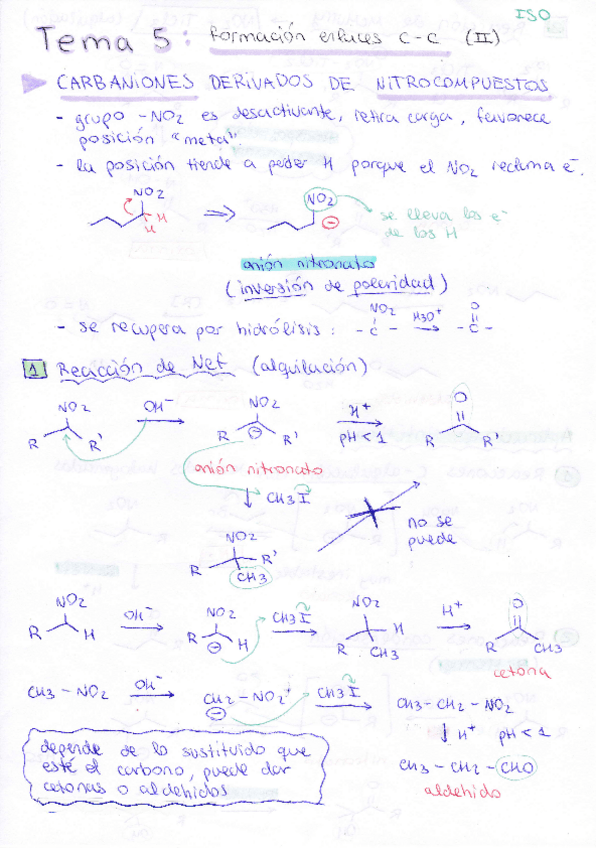 ISO
Tema 5: Formación enlaces C-C (II)
CARBANIONES DERIVADOS DE NITROCOMPUESTOS
- grupo -NO2 es desactivante, retira carga, favorece
posición "meta"
- la posición tiende a peder H porque el NO2 reclama e-.
NO2
H
H
⇒
NO2
⊖
se lleva los e-
de los H
anión nitronato
(inversión de polaridad)
- se recupera por hidrólisis: NO2 -C- H3O+ → O -C-
1 Reacción de Nef (alquilación)
NO2 OH- NO2 H+ O
R R' ⊖ R R' pH<1 R R'
anión nitronato
↓ CH3I
no se
puede
NO2
R R'
CH3
NO2 OH- NO2 CH3I NO2 H+ O
R H R ⊖ H R H CH3 R CH3
cetona
CH3-NO2 OH- → CH2-NO2+ CH3I → CH3-CH2-NO2
⊖
↓ H+ pH<1
CH3-CH2-CHO
aldehido
depende de lo sustituido que
esté el carbono, puede dar
cetonas o aldehidos